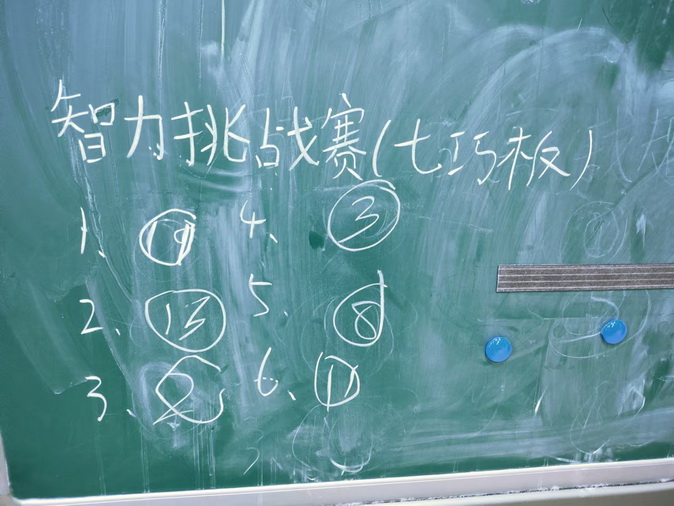 智力挑战赛(七巧板)
1、 4、 ③
2、 ⑬ 5、 ⑧
3、 ② 6、 ①